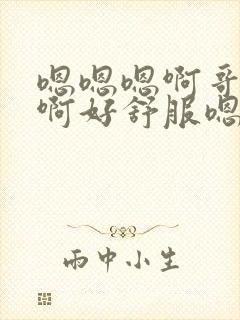 嗯嗯嗯啊哥
啊好舒服嗯
雨中小生